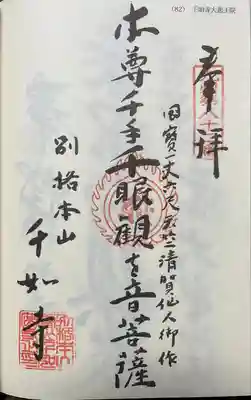 (82) 千如寺大悲王院
奉拝
国宝一丈六尺清賀仙人御作
本尊千手千眼観世音菩薩
別格本山
千如寺